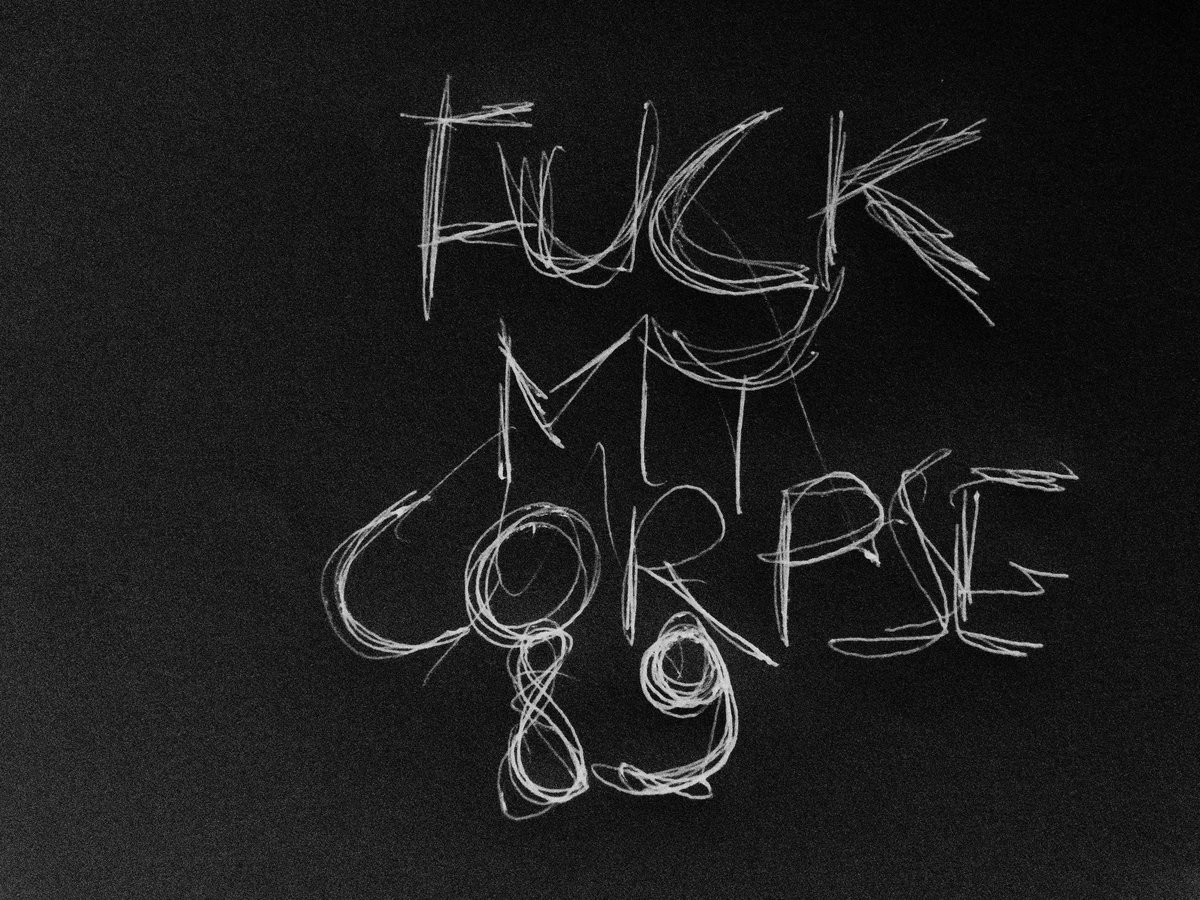 FUCK
MY
CORPSE
89